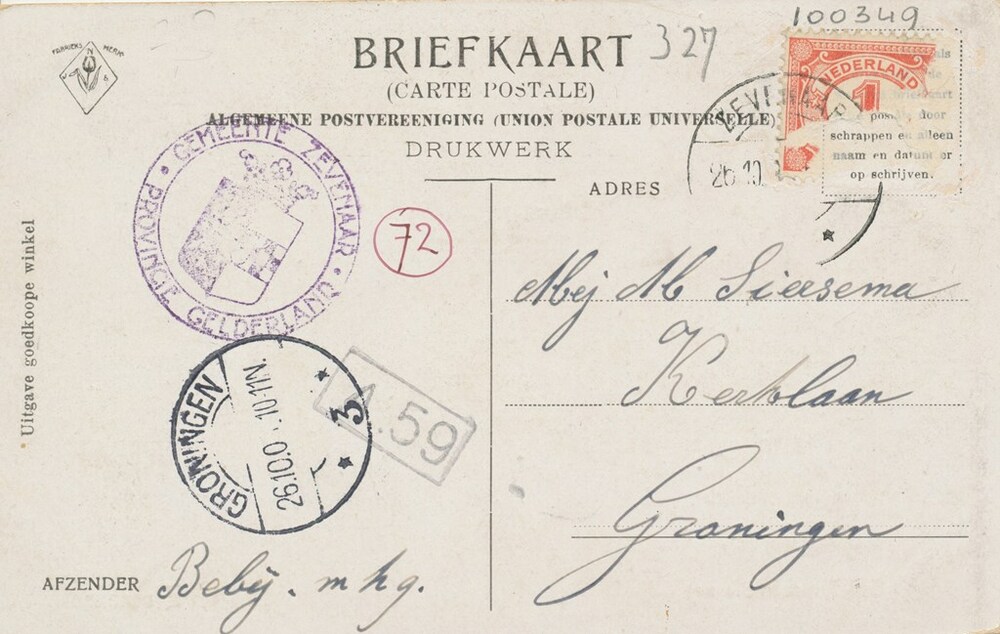 100349
327
FABRIEKS MERK
BRIEFKAART
(CARTE POSTALE)
ALGEMEENE POSTVEREENIGING (UNION POSTALE UNIVERSELLE)
DRUKWERK
ADRES
NEDERLAND
1
ZEVENAAR
26 10
door
schrappen en alleen
naam en datum er
op schrijven.
GEMEENTE ZEVENAAR
PROVINCIE GELDERLAND
72
Uitgave goedkoope winkel
Mej M Siersema
Kerklaan
Groningen
GRONINGEN
26.10.0 . 10-11N.
3
A.59
AFZENDER Beby. m h g.